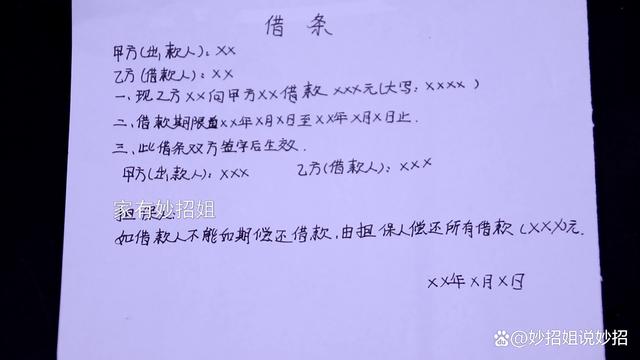 借条
甲方(出款人)：XX
乙方(借款人)：XX
一、现乙方XX向甲方XX借款 XXX元(大写：XXXX)
二、借款期限XX年X月X日至XX年X月X日止.
三、此借条双方签字后生效.
甲方(出款人)：XXX 乙方(借款人)：XXX
家有妙招姐
担保
如借款人不能如期偿还借款,由担保人偿还所有借款(XXX)元.
XX年X月X日
@妙招姐说妙招